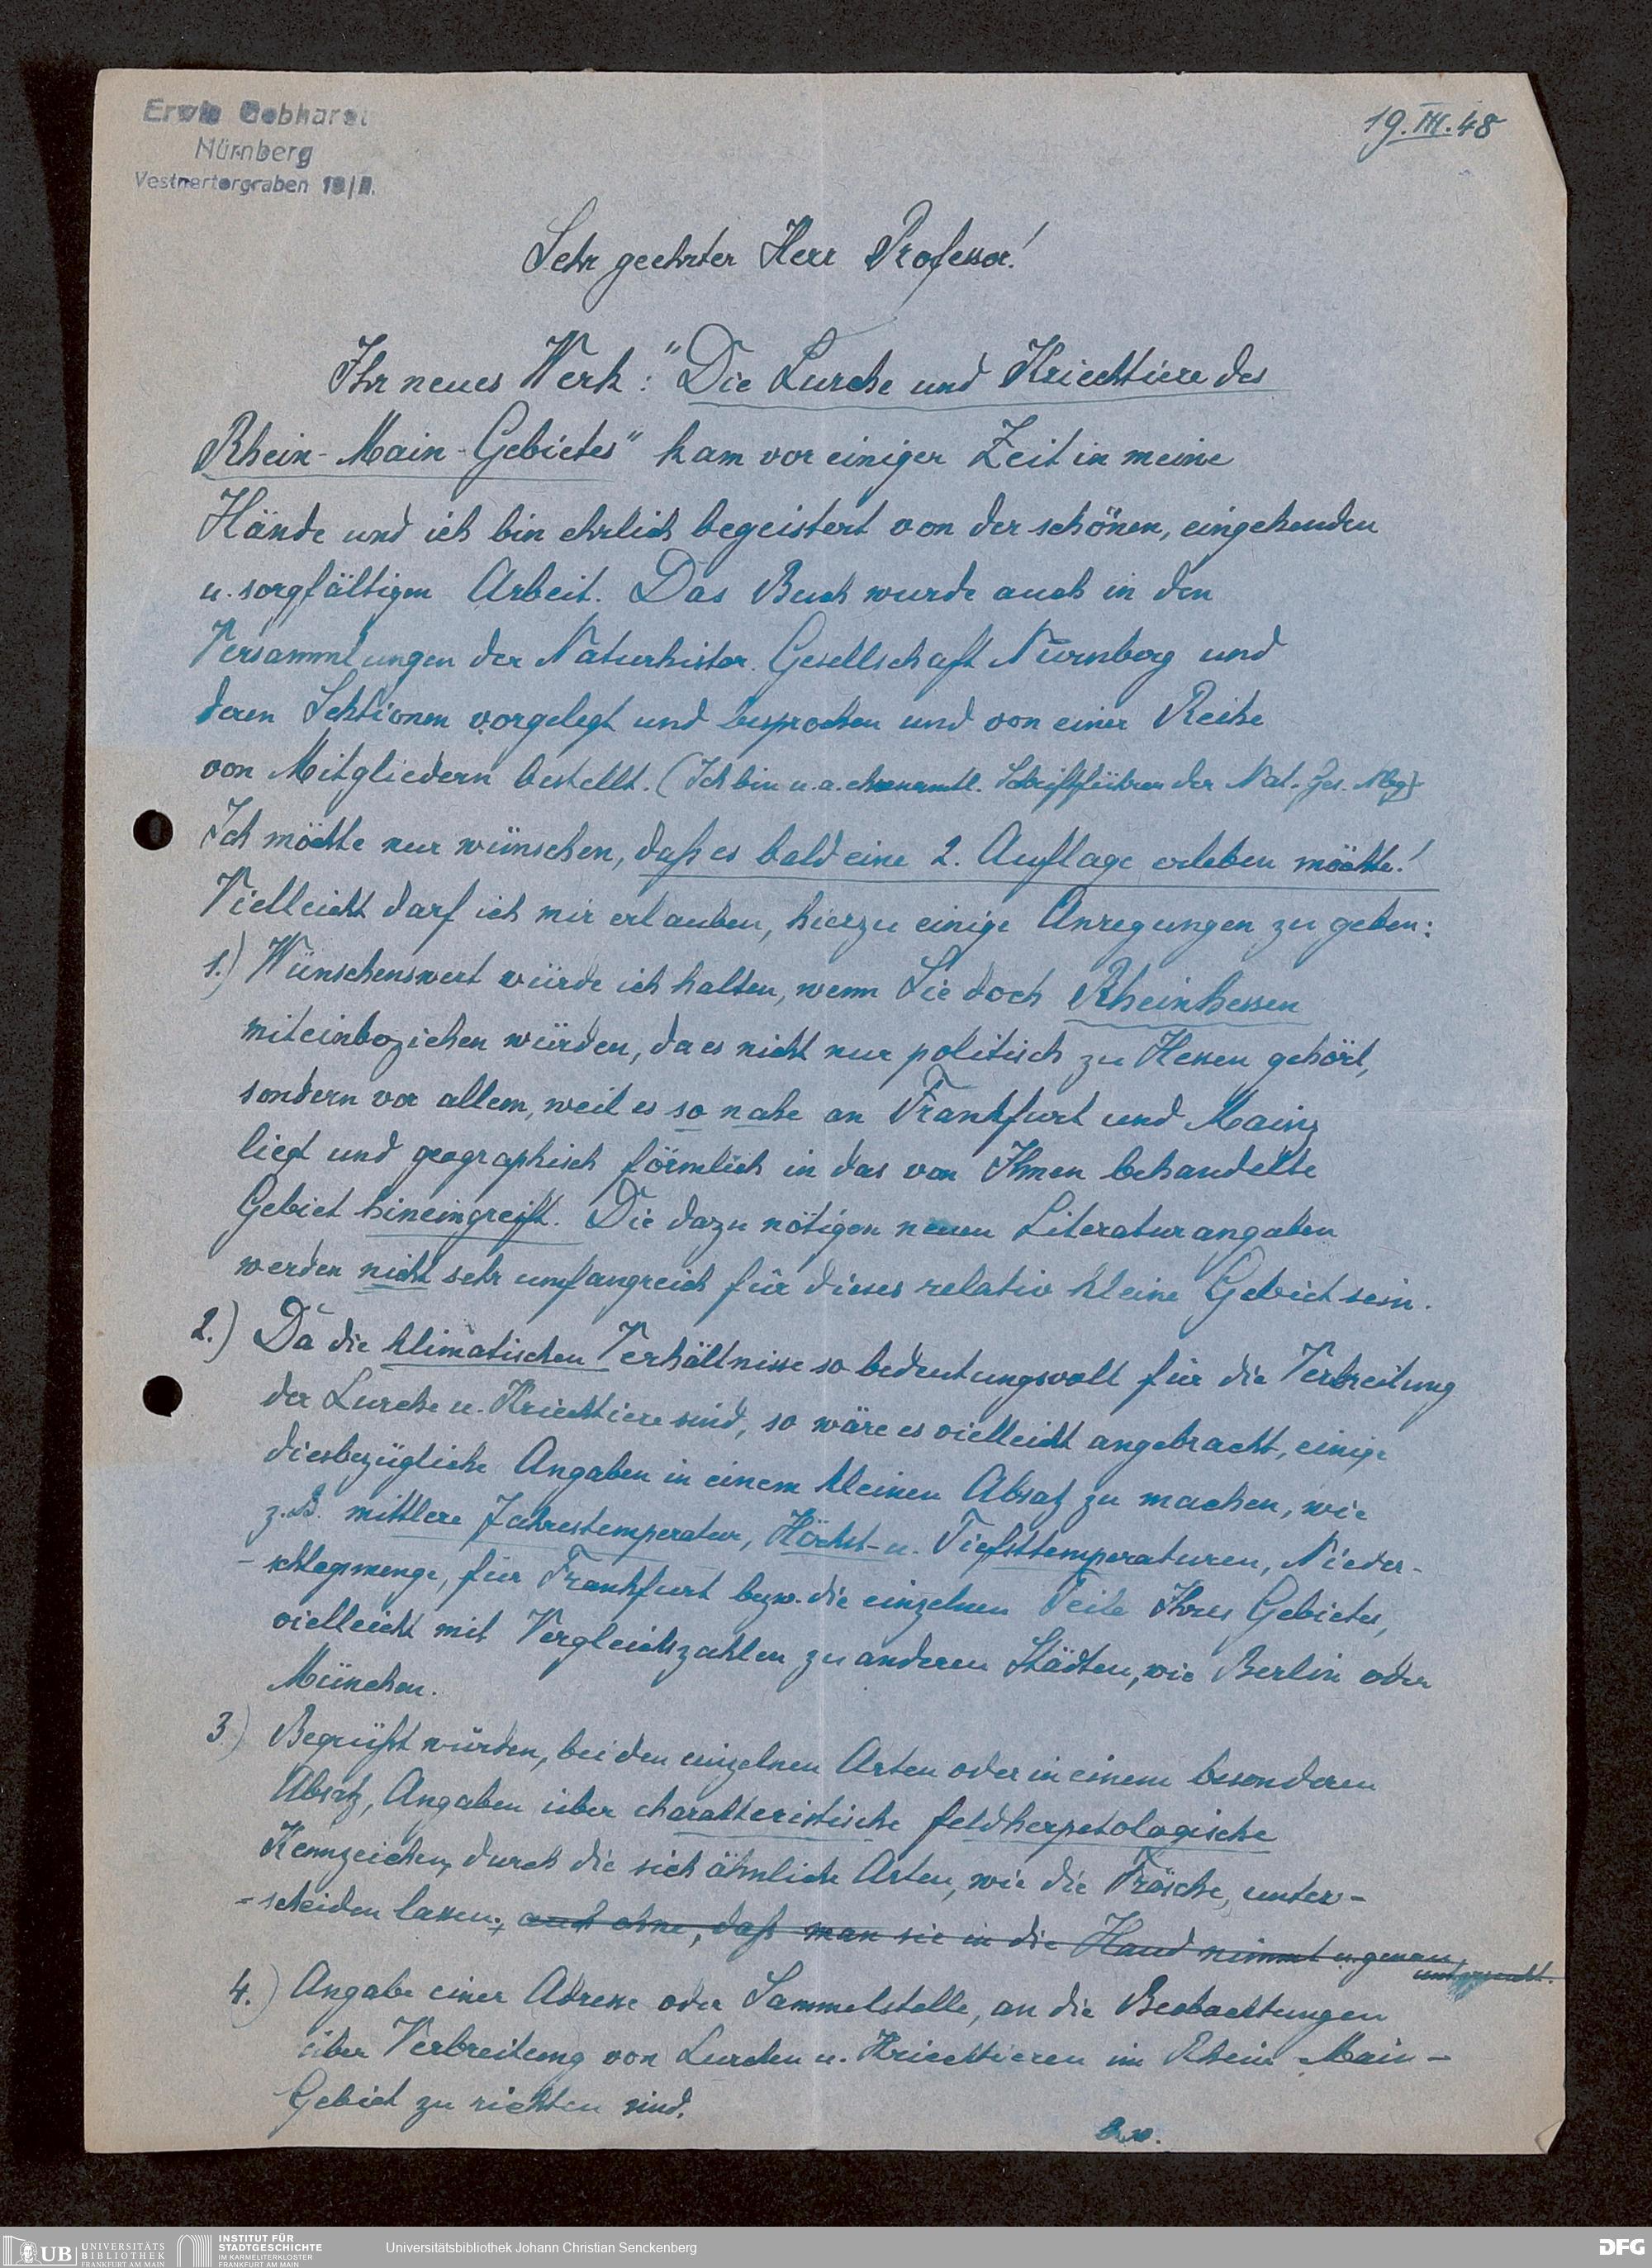 Erwin Gebhardt
Nürnberg
Vestnertorgraben
19.III.48
Sehr geehrter Herr Professor!
Ihr neues Werk: "Die Lurche und Kriechtiere des
Rhein-Main-Gebietes" kam vor einiger Zeit in meine
Hände und ich bin ehrlich begeistert von der schönen, eingehenden
u. sorgfältigen Arbeit. Das Buch wurde auch in den
Versammlungen der Naturhistor. Gesellschaft Nürnberg und
deren Sektionen vorgelegt und besprochen und von einer Reihe
von Mitgliedern bestellt. (Ich bin u.a. ehrenamtl. Schriftführer der Nat. Ges. Nbg)
Ich möchte nur wünschen, daß es bald eine 2. Auflage erleben möchte!
Vielleicht darf ich mir erlauben, hierzu einige Anregungen zu geben:
1.) Wünschenswert würde ich halten, wenn Sie doch Rheinhessen
miteinbeziehen würden, da es nicht nur politisch zu Hessen gehört,
sondern vor allem, weil es so nahe an Frankfurt und Mainz
liegt und geographisch förmlich in das von Ihnen behandelte
Gebiet hineingreift. Die dazu nötigen neuen Literaturangaben
werden nicht sehr umfangreich für dieses relativ kleine Gebiet sein.
2.) Da die klimatischen Verhältnisse so bedeutungsvoll für die Verbreitung
der Lurche u. Kriechtiere sind, so wäre es vielleicht angebracht, einige
diesbezügliche Angaben in einem kleinen Absatz zu machen, wie
z.B. mittlere Jahrestemperatur, Höchst- u. Tiefsttemperaturen, Nieder-
-schlagsmenge, für Frankfurt bezw. die einzelnen Teile Ihres Gebietes,
vielleicht mit Vergleichszahlen zu anderen Städten, wie Berlin oder
München.
3.) Begrüßt würden, bei den einzelnen Arten oder in einem besonderen
Absatz, Angaben über charakteristische feldherpetologische
Kennzeichen, durch die sich ähnliche Arten, wie die Frösche, unter-
-scheiden lassen, auch ohne, daß man sie in die Hand nimmt u. genau
untersucht.
4.) Angabe einer Adresse oder Sammelstelle, an die Beobachtungen
über Verbreitung von Lurchen u. Kriechtieren im Rhein-Main-
Gebiet zu richten sind.
UB UNIVERSITÄTS
BIBLIOTHEK
FRANKFURT AM MAIN
INSTITUT FÜR
STADTGESCHICHTE
IM KARMELITERKLOSTER
FRANKFURT AM MAIN
Universitätsbibliothek Johann Christian Senckenberg
DFG